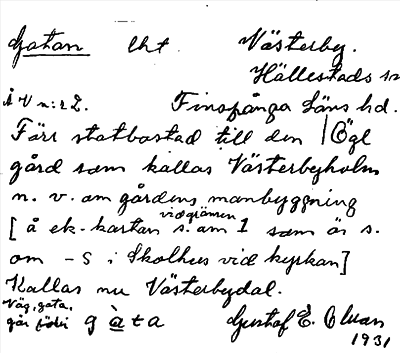 Gatan lht Västerby.
Hällestads sn
Å V n:r 2. Finspånga läns hd.
Förr statbostad till den | Ögl
gård som kallas Västerbyholm
n. v. om gårdens manbyggning
[å ek. kartan s. om 1 vid gränsen som är s.
om -s i Skolhus vid kyrkan]
Kallas nu Västerbydal.
Väg, gata,
går förbi gàta Gustaf E. Oluan
1931